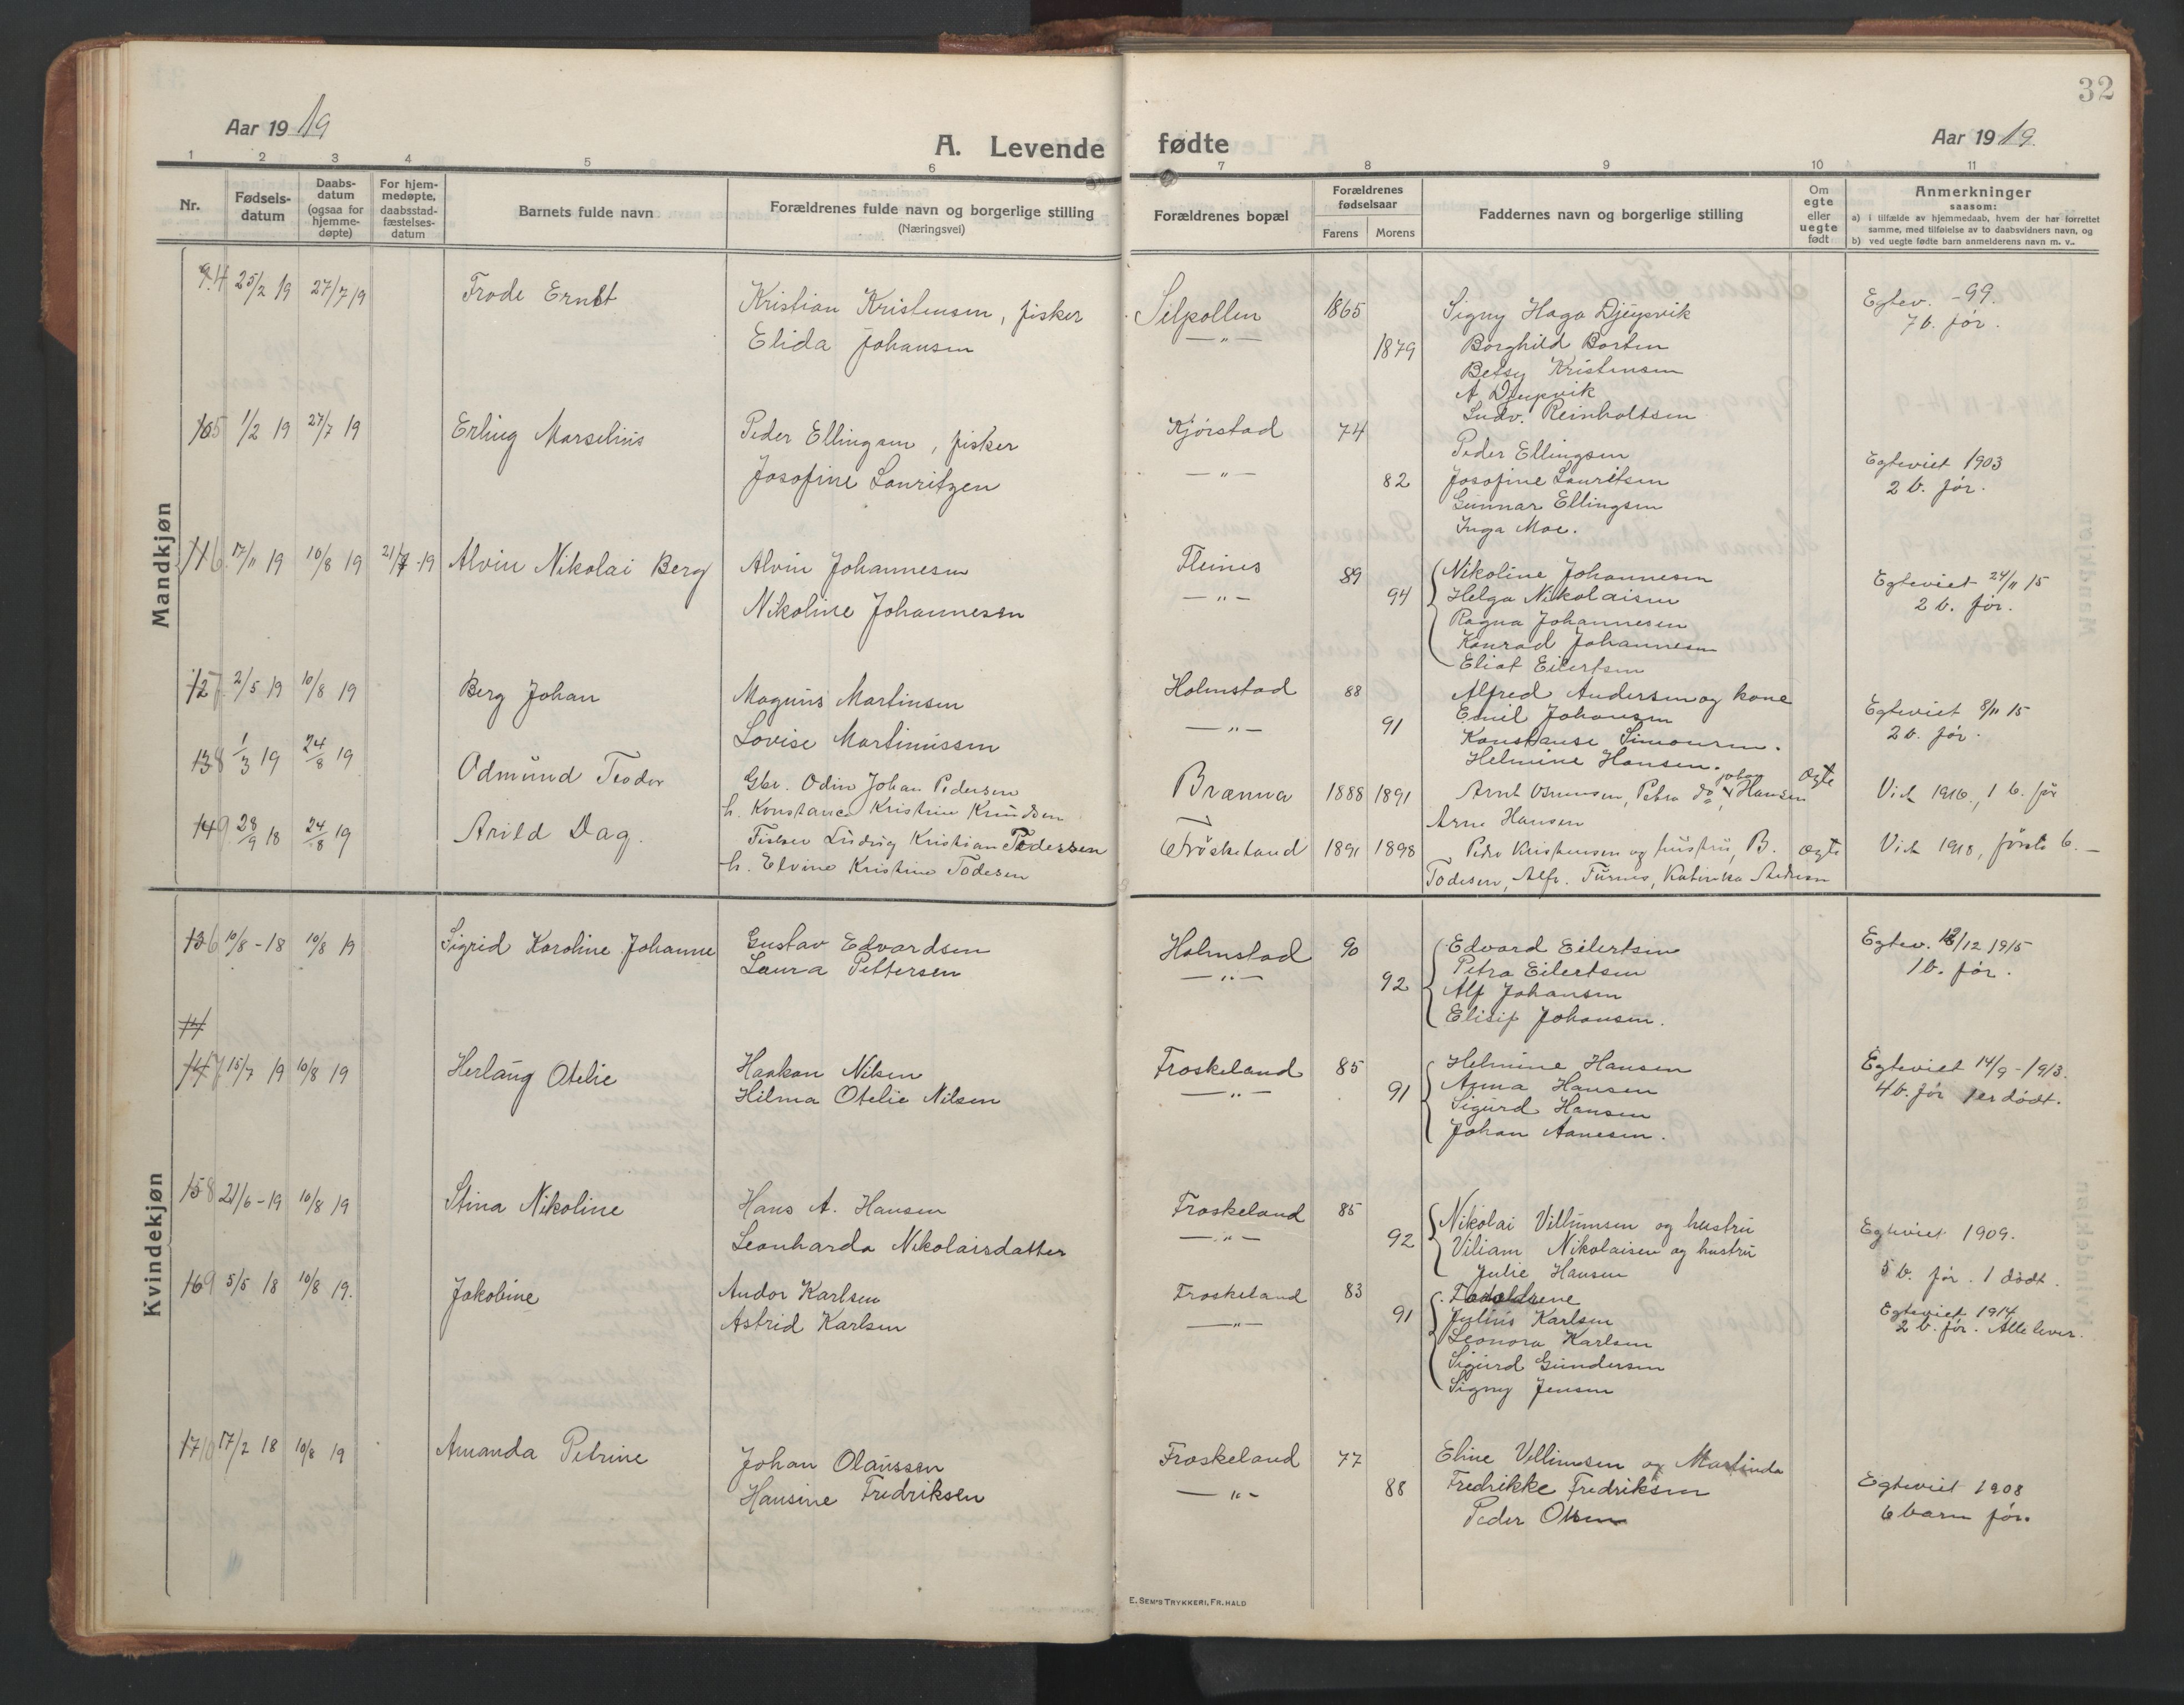 32
Aar 1919
A. Levende fødte
Aar 1919.
1 2 3 4 5 6 7 8 9 10 11
Nr.
Fødsels-
datum
Daabs-
datum
(ogsaa for
hjemme-
døpte)
For hjem-
medøpte,
daabsstad-
fæstelses-
datum
Barnets fulde navn
Forældrenes fulde navn og borgerlige stilling
(Næringsvei)
Forældrenes bopæl
Forældrenes
fødselsaar
Farens Morens
Faddernes navn og borgerlige stilling
Om
egte
eller
uegte
født
Anmerkninger
saasom:
a) i tilfælde av hjemmedaab, hvem der har forrettet
samme, med tilføielse av to daabsvidners navn, og
b) ved uegte fødte barn anmelderens navn m. v..
Mandkjøn
4 25/2 19 27/7 19 Frode Ernst
Kristian Kristensen, fisker
Elida Johansen
Silpollen 1865
— " — 1879
Signy Haga Djupvik
Borghild Borten
Betsy Kristensen
A Djupvik
Ludv. Reinholtsen
Egtev. -99.
7 b. før.
5 1/2 19 27/7 19 Erling Marselius
Peder Ellingsen, fisker
Josofine Lauritzen
Kjørstad 74
— " — 82
Peder Ellingsen
Josofine Lauritsen
Gunnar Ellingsen
Inga Moe.
Egteviet 1903
2 b. før.
6 17/11 19 10/8 19 21/7-19 Alvin Nikolai Berg
Alvin Johannesen
Nikoline Johannesen
Fleines 89
— " — 94
Nikoline Johannesen
Helga Nikolaisen
Ragna Johannesen
Konrad Johannesen
Eliot Eilertsen
Egteviet 24/11 15
2 b. før.
7 2/5 19 10/8 19 Berg Johan
Magnus Martinsen
Lovise Martinussen
Holmstad 88
— " — 91
Alfred Andersen og kone
Emil Johansen
Konstanse Simonsen.
Helmine Hansen.
Egteviet 8/11 15
2 b. før.
138 1/3 19 24/8 19 Odmund Teodor
Gbr. Odin Johan Pedersen
h. Konstance Kristine Knudsen
Brænna 1888 1891
Petra do
Johan Hansen
Arne Hansen
ægte
Vid 1916, 1 b. før
149 28/9 18 24/8 19 Arild Dag.
Fisker Ludvig Kristian Todersen
h. Elvine Kristine Todesen
Frøskeland 1891 1898
Pedr Kristensen og hustru, B.
Todesen, Alfr. Furnes, Katerika
ægte
Vid 1918, første b. —
Kvindekjøn
136 10/8-18 10/8 19 Sigrid Karoline Johanne
Gustav Edvardsen
Laura Pettersen
Holmstad 90
— " — 92
Edvard Eilertsen
Petra Eilertsen
Alf Johansen
Elisif Johansen.
Egtev. 18/12 1915
1 b. før.
14
7 15/7 19 10/8 19 Herlaug Otelie
Haakon Nilsen
Hilma Otelie Nilsen
Froskeland 85
— " — 91
Helmine Hansen
Anna Hansen
Sigurd Hansen
Johan Aanesen.
Egteviet 14/9-1913.
4 b. før 1 er dødt.
158 21/6-19 10/8 19 Stina Nikoline
Hans A. Hansen
Leonharda Nikolaisdatter
Froskeland 85
— " — 92
Nikolai Villumsen og hustru
Viliam Nikolaisen og hustru
Julie Hansen
Egteviet 1909.
5 b. før. 1 dødt.
169 5/5 18 10/8 19. Jakobine
Andor Karlsen
Astrid Karlsen
Froskeland 83
— " — 91
Julius Karlsen
Leonora Karlsen
Sigurd Gundersen
Signy Jensen
Egteviet 1914
2 b. før. Alle lever.
1710 17/2 18 10/8 19 Amanda Petrine
Johan Olaussen
Hansine Fredriksen
Froskeland 77
— " — 88
Eline Villumsen og Martinda
Fredrikke Fredriksen
Peder Olsen
Egteviet 1908
6 barn før.
E. SEM'S TRYKKERI, FR.HALD